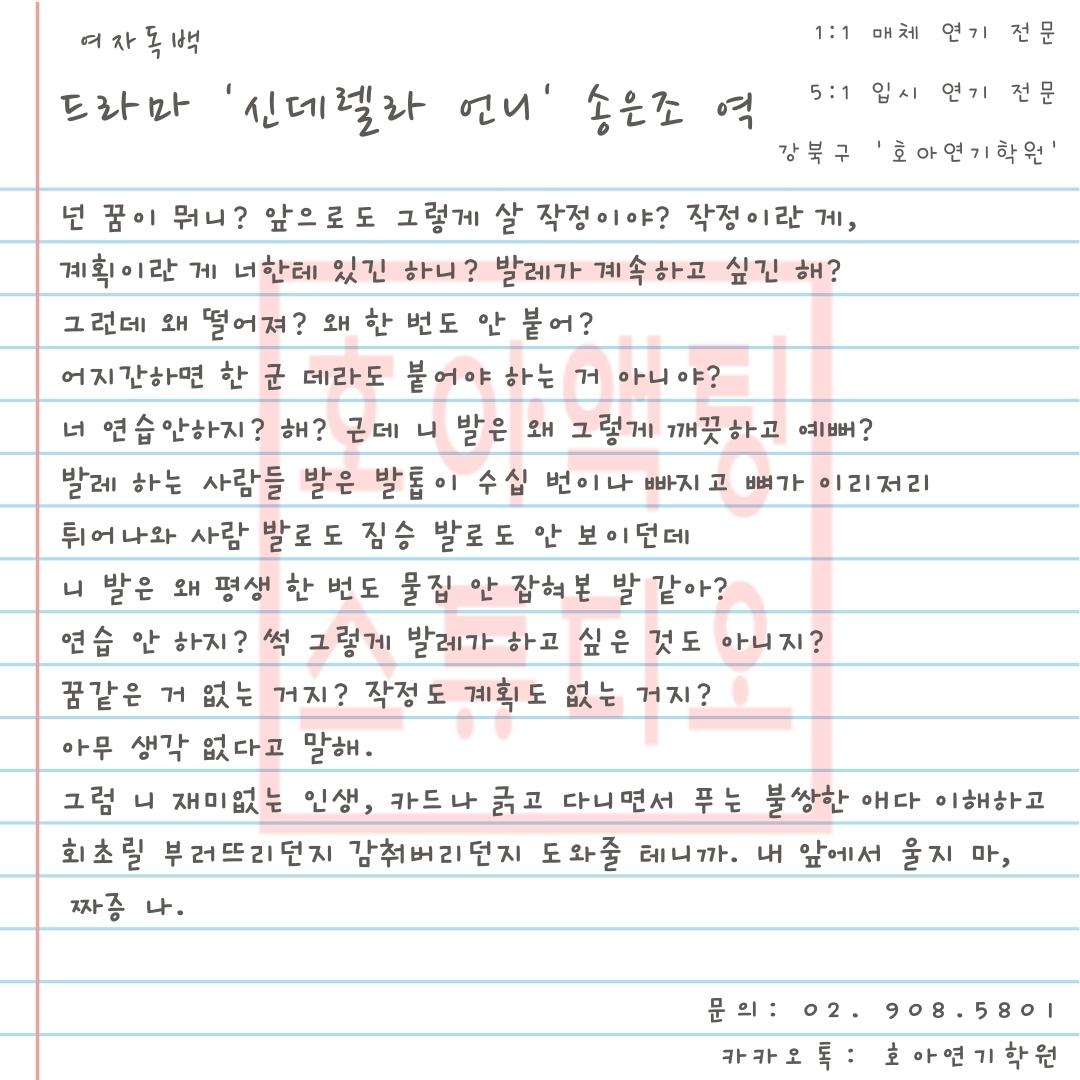 여자독백
드라마 '신데렐라 언니' 송은조 역
1:1 매체 연기 전문
5:1 입시 연기 전문
강북구 '호아연기학원'
넌 꿈이 뭐니? 앞으로도 그렇게 살 작정이야? 작정이란 게,
계획이란 게 너한테 있긴 하니? 발레가 계속하고 싶긴 해?
그런데 왜 떨어져? 왜 한 번도 안 붙어?
어지간하면 한 군 데라도 붙어야 하는 거 아니야?
너 연습안하지? 해? 근데 니 발은 왜 그렇게 깨끗하고 예뻐?
발레 하는 사람들 발은 발톱이 수십 번이나 빠지고 뼈가 이리저리
튀어나와 사람 발로도 짐승 발로도 안 보이던데
니 발은 왜 평생 한 번도 물집 안 잡혀본 발 같아?
연습 안 하지? 썩 그렇게 발레가 하고 싶은 것도 아니지?
꿈같은 거 없는 거지? 작정도 계획도 없는 거지?
아무 생각 없다고 말해.
그럼 니 재미없는 인생, 카드나 긁고 다니면서 푸는 불쌍한 애다 이해하고
회초릴 부러뜨리던지 감춰버리던지 도와줄 테니까. 내 앞에서 울지 마,
짜증 나.
호아액팅
스튜디오
문의: 02. 908.5801
카카오톡: 호아연기학원